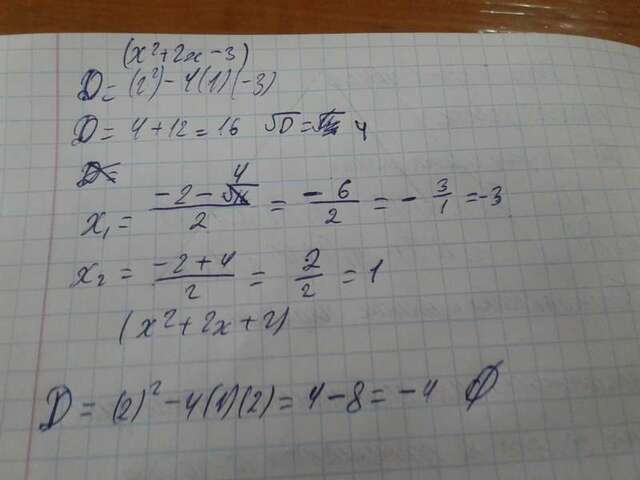 (x²+2x-3)
D=(2²)-4(1)(-3)
D=4+12=16 √D= 4
D=
x₁= (-2-4)/2 = -6/2 = -3/1 =-3
x₂= (-2+4)/2 = 2/2 =1
(x²+2x+2)
D=(2)²-4(1)(2)=4-8=-4 ∅